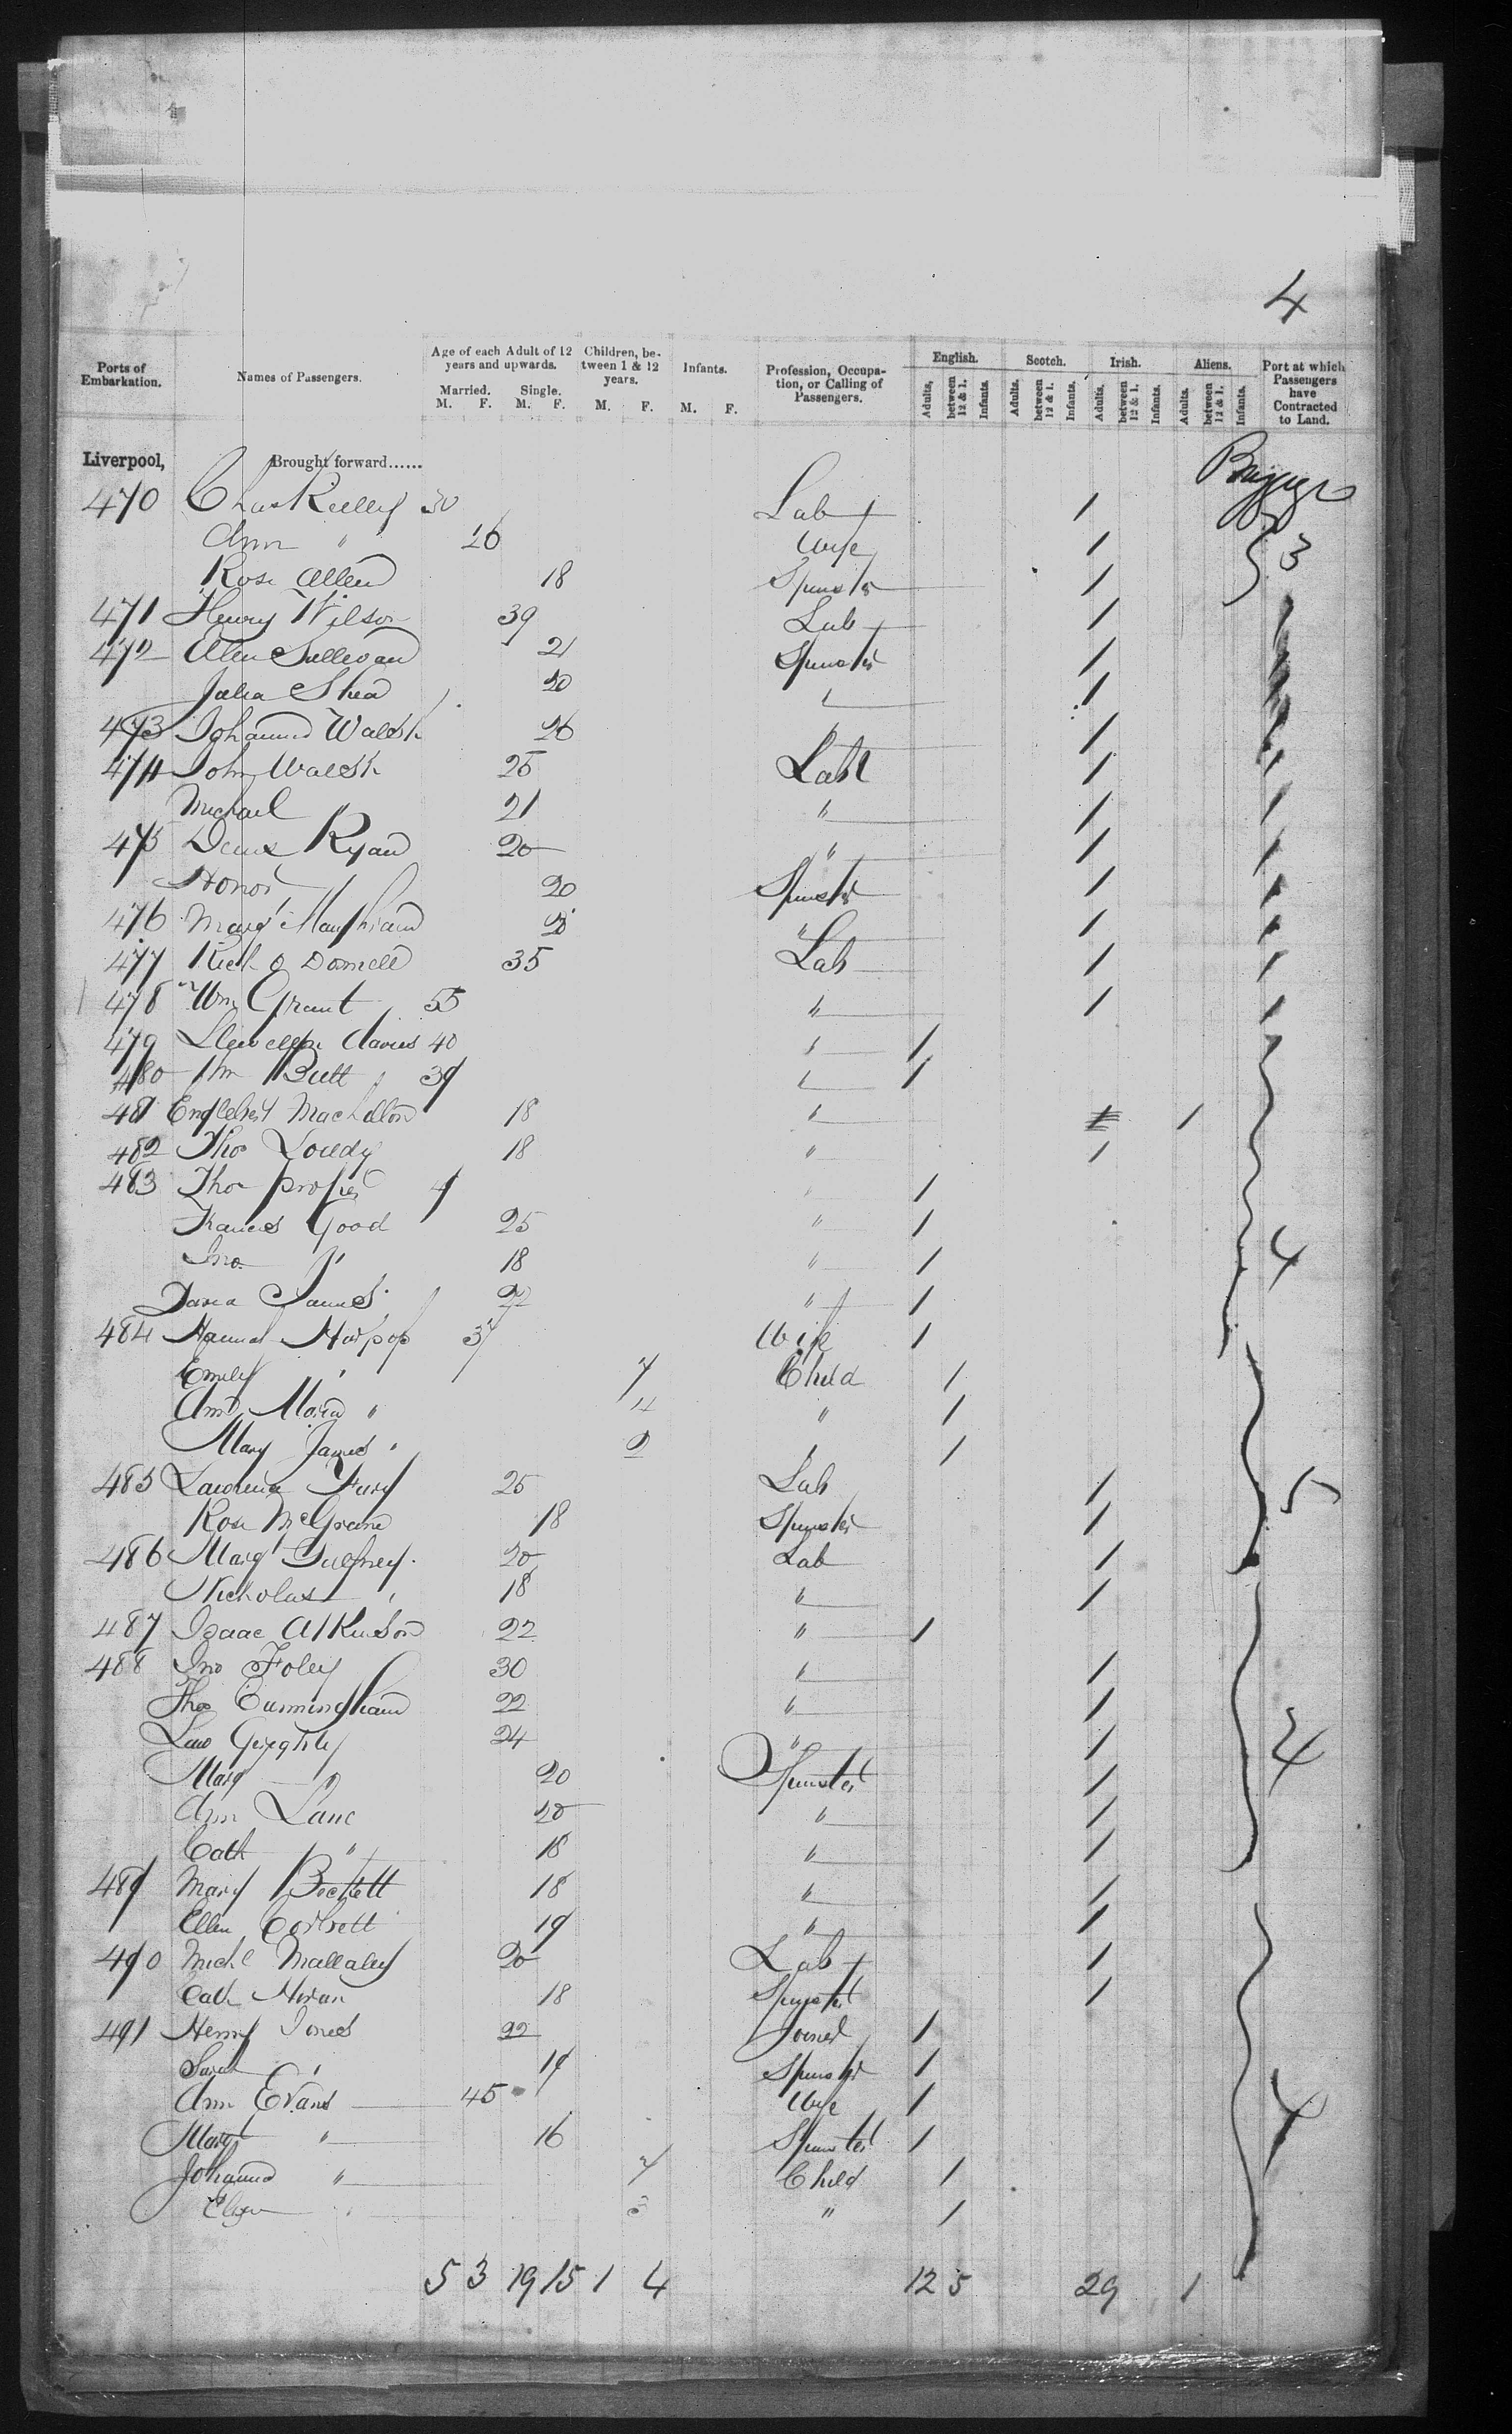 4
Ports of Embarkation. Names of Passengers. Age of each Adult of 12 years and upwards. Married. M. F. Single. M. F. Children, between 1 & 12 years. M. F. Infants. M. F. Profession, Occupation, or Calling of Passengers. English. Adults, between 12 & 1. Infants. Scotch. Adults. between 12 & 1. Infants. Irish. Adults. between 12 & 1. Infants. Aliens. Adults. between 12 & 1. Infants. Port at which Passengers have Contracted to Land.
Liverpool, Brought forward......
470 Chas Reilly 30 Lab 1
Ann " 26 Wife 1 3
Rose Allen 18 Spinster 1
471 Henry Wilson 39 Lab 1 1
472 Ellen Sullivan 21 Spinster 1
Julia Shea 20 " 1
473 Johanna Walsh 26 1
474 John Walsh 25 Labr 1 1
Michael " 21 " 1 1
475 Denis Ryan 20 " 1 1
Honor " 20 Spinster 1 1
476 Margt 20 " 1 1
477 Rich O Donnell 35 Lab 1 1
478 Wm Grant 55 " 1 1
479 Llewellyn Davies 40 " 1
480 Butt 39 " 1
481 18 " 1
482 Thos 18 " 1
483 Thos " 1
Francis Good 25 " 1
Jno " 18 " 1 4
James 22 " 1
484 Hannah 37 Wife 1
Emily " 7 Child 1
Ann Maria " 4 " 1
Mary James " 2 " 1
485 Lawrence Fury 25 Lab 1 5
Rose McGrane 18 Spinster 1
486 Margt 20 Lab 1
Nicholas " 18 " 1
487 Isaac Atkinson 22 " 1
488 Jno Foley 30 " 1
Thos Cunningham 22 " 1
Law 24 " 1 4
Marg " 20 Spinster 1
Ann Lane 20 " 1
Cath " 18 " 1
489 Mary Beckett 18 " 1
Ellen Corbett 19 " 1
490 Michl Mallaley 20 Lab 1
Cath Horan 18 Spinster 1
491 Henry Jones 22 Joiner 1
Sarah " 19 Spinster 1
Ann Evans 45 Wife 1 4
Margt " 16 Spinster 1
Johanna " 7 Child 1
" 3 " 1
5 3 19 15 1 4 12 5 29 1